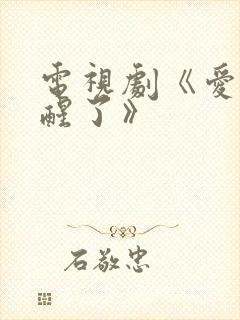 電視劇《愛
醒了》
石敬忠